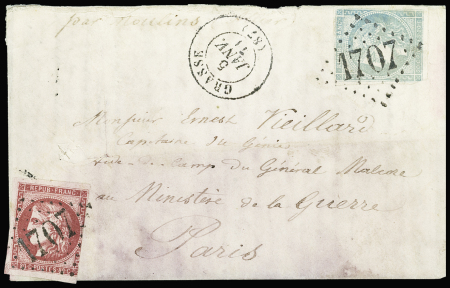 par Moulins
GRASSE
5
JANV.
71
(87)
1707
Monsieur Ernest Vieillard
Capitaine du Génie
Aide-de-Camp du Général Malcor
au Ministère de la Guerre
Paris
REPUB. FRANC.
1707
POSTES